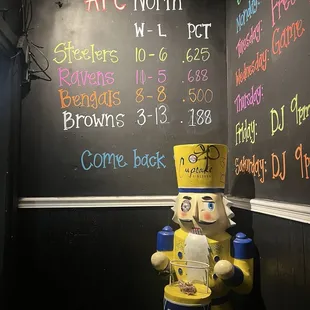 AFC North
W - L PCT
Steelers 10 - 6 .625
Ravens 11 - 5 .688
Bengals 8 - 8 .500
Browns 3 - 13 .188
Come back
Cupcake
Monday:
Tuesday:
Wednesday:
Game
Thursday:
Friday: DJ 9pm
Saturday: DJ 9pm